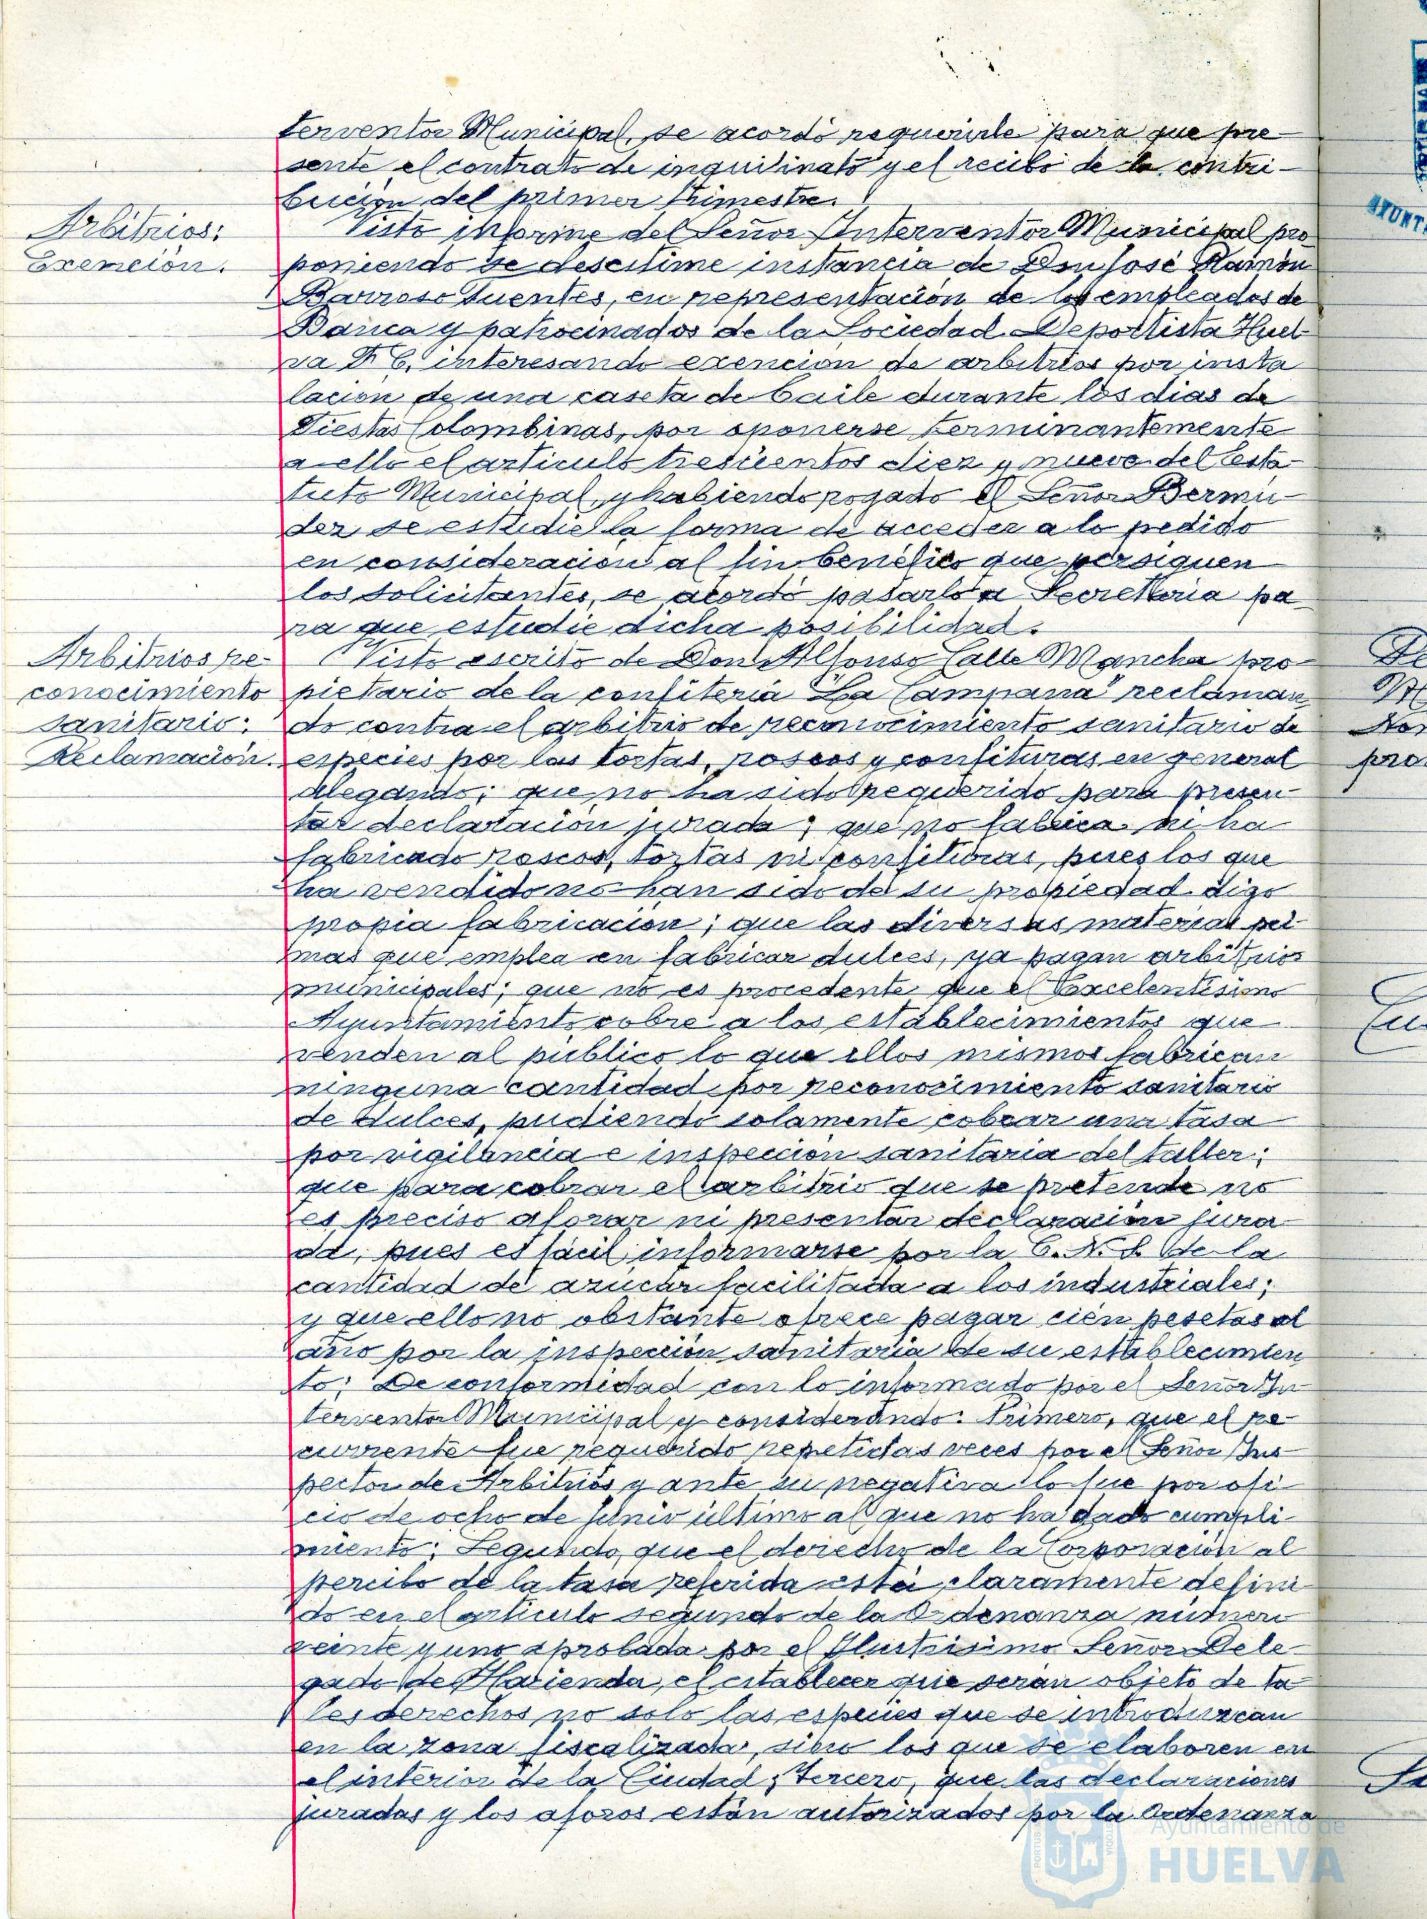 terventor Municipal, se acordó requerirle para que pre-
sente el contrato de inquilinato y el recibo de la contri-
bución del primer trimestre.
Arbitrios:
Exención.
Visto informe del Señor Interventor Municipal pro
poniendo se desestime instancia de Don José Ramón
Barroso Fuentes, en representación de los empleados de
Banca y patrocinados de la Sociedad Deportista Huel-
va F. C. interesando exención de arbitrios por insta
lación de una caseta de baile durante los dias de
Fiestas Colombinas, por oponerse terminantemente
a ello el articulo trescientos diez y nueve del Esta-
tuto Municipal, y habiendo rogado el Señor Bermú-
dez se estudie la forma de acceder a lo pedido
en consideración al fin benéfico que persiguen
los solicitantes, se acordó pasarlo a Secretaria pa
ra que estudie dicha posibilidad.
Arbitrios re-
conocimiento
sanitario:
Reclamación.
Visto escrito de Don Alfonso Calle Mancha pro-
pietario de la confiteria "La Campana" reclaman
do contra el arbitrio de reconocimiento sanitario de
especies por las tortas, roscos y confituras en general
alegando; que no ha sido requerido para presen-
tar declaración jurada; que no fabrica ni ha
fabricado roscos, tortas ni confituras, pues los que
ha vendido no han sido de su propiedad digo
propia fabricación; que las diversas materias pri-
mas que emplea en fabricar dulces, ya pagan arbitrios
municipales; que no es procedente que el Excelentísimo
Ayuntamiento cobre a los establecimientos que
venden al público lo que ellos mismos fabrican
ninguna cantidad por reconocimiento sanitario
de dulces, pudiendo solamente cobrar una tasa
por vigilancia e inspección sanitaria del taller;
que para cobrar el arbitrio que se pretende no
es preciso aforar ni presentar declaración jura-
da, pues es fácil informarse por la C. N. S. de la
cantidad de azúcar facilitada a los industriales;
y que ello no obstante ofrece pagar cién pesetas al
año por la inspección sanitaria de su establecimien
to; De conformidad con lo informado por el Señor In-
terventor Municipal y considerando: Primero, que el re-
currente fue requerido repetidas veces por el Señor Ins-
pector de Arbitrios y ante su negativa lo fue por ofi-
cio de ocho de Junio último al que no ha dado cumpli-
miento; Segundo, que el derecho de la Corporación al
percibo de la tasa referida está claramente defini
do en el articulo segundo de la Ordenanza número
veinte y uno aprobada por el Ilustrisimo Señor Dele-
gado de Hacienda, el establecer que serán objeto de ta-
les derechos no solo las especies que se introduzcan
en la zona fiscalizada, sino los que se elaboren en
el interior de la Ciudad; Tercero, que las declaraciones
juradas y los aforos están autorizados por la Ordenanza
Ayuntamiento de
HUELVA